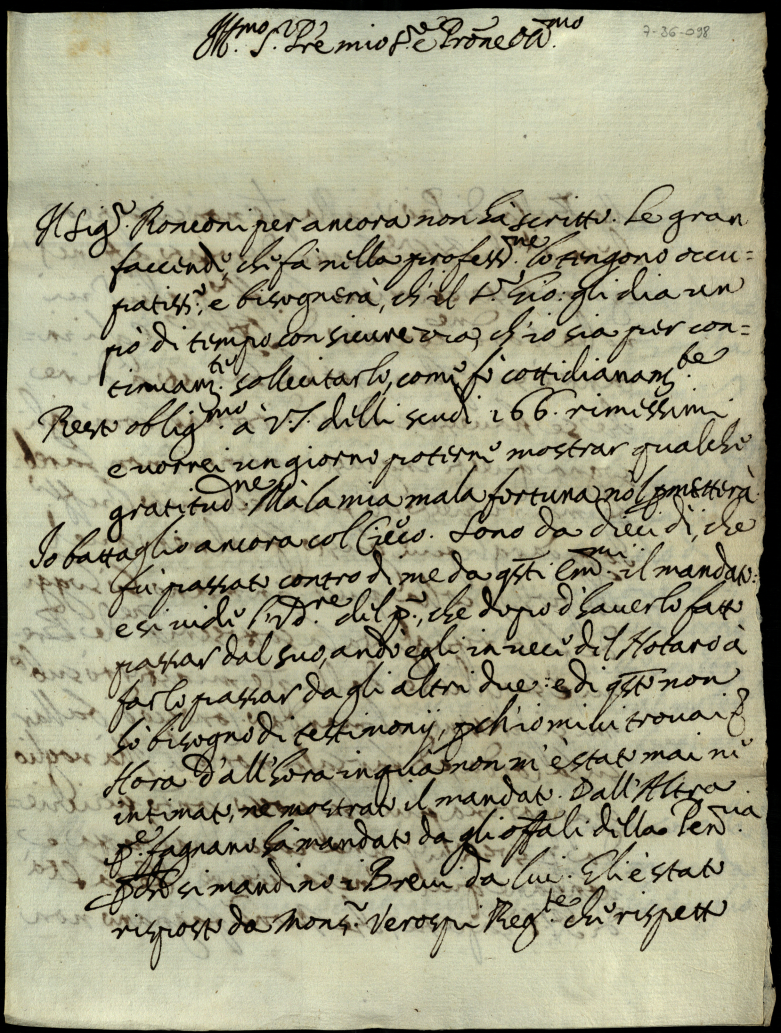 Ill.mo S.r Premio S.re e Prone Oss.mo
7-36-098
Il Sig.r Ronconi per ancora non hà scritto. Le gran
faccende, che fà nella profess.ne lo tengono occu=
patiss.o, e bisognerà, ch'il S.r Gio: gli dia un
pò di tempo con sicurezza, ch'io sia per con=
tinuam.te sollecitarlo, come fò cottidianam.te
Resto oblig.mo à V.S. delli scudi 166. rimessimi
e vorrei un giorno poterne mostrar qualche
gratitud.ne Mà la mia mala fortuna nol pmetterà.
Io battaglio ancora col Cieco. Sono da dieci dì, che
fù passato contro di me da qsti Em.mi il mandato:
e si vide l'ard.re del p.e, che dopo d'haverlo fatto
passar dal suo, andò egli in vece del Notaro à
farlo passar da gli altri due: e di qsto non
hò bisogno di testimonij, pch'io mi vi trovai
Hora d'all'hora in quà non m'è stato mai ne
intimato, ne mostrato il mandato. Dall'Altra
p.e fagnano hà mandato da gli offali della Pen.ria
si mandino i Brevi da lui. Gli è stato
risposto da Mons.r Verospi Reg.te che rispetto